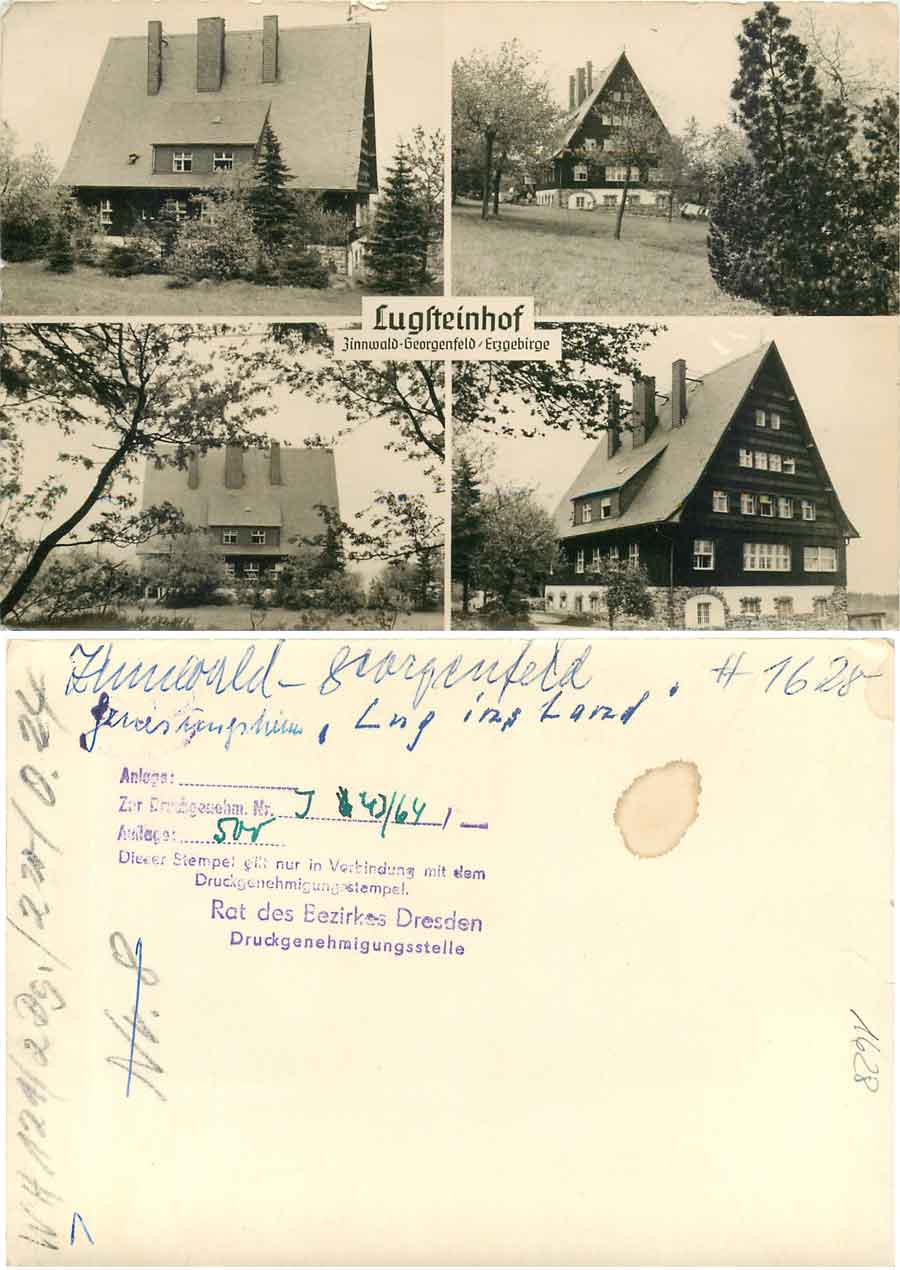 Lugsteinhof
Zinnwald-Georgenfeld/Erzgebirge
Zinnwald-Georgenfeld, # 1628
Genesungsheim, Lug ins Land
Anlage:
Zur Druckgenehm. Nr. J 43/64
Auflage: 500
Dieser Stempel gilt nur in Verbindung mit dem
Druckgenehmigungsstempel.
Rat des Bezirkes Dresden
Druckgenehmigungsstelle
Nr. 8
1628